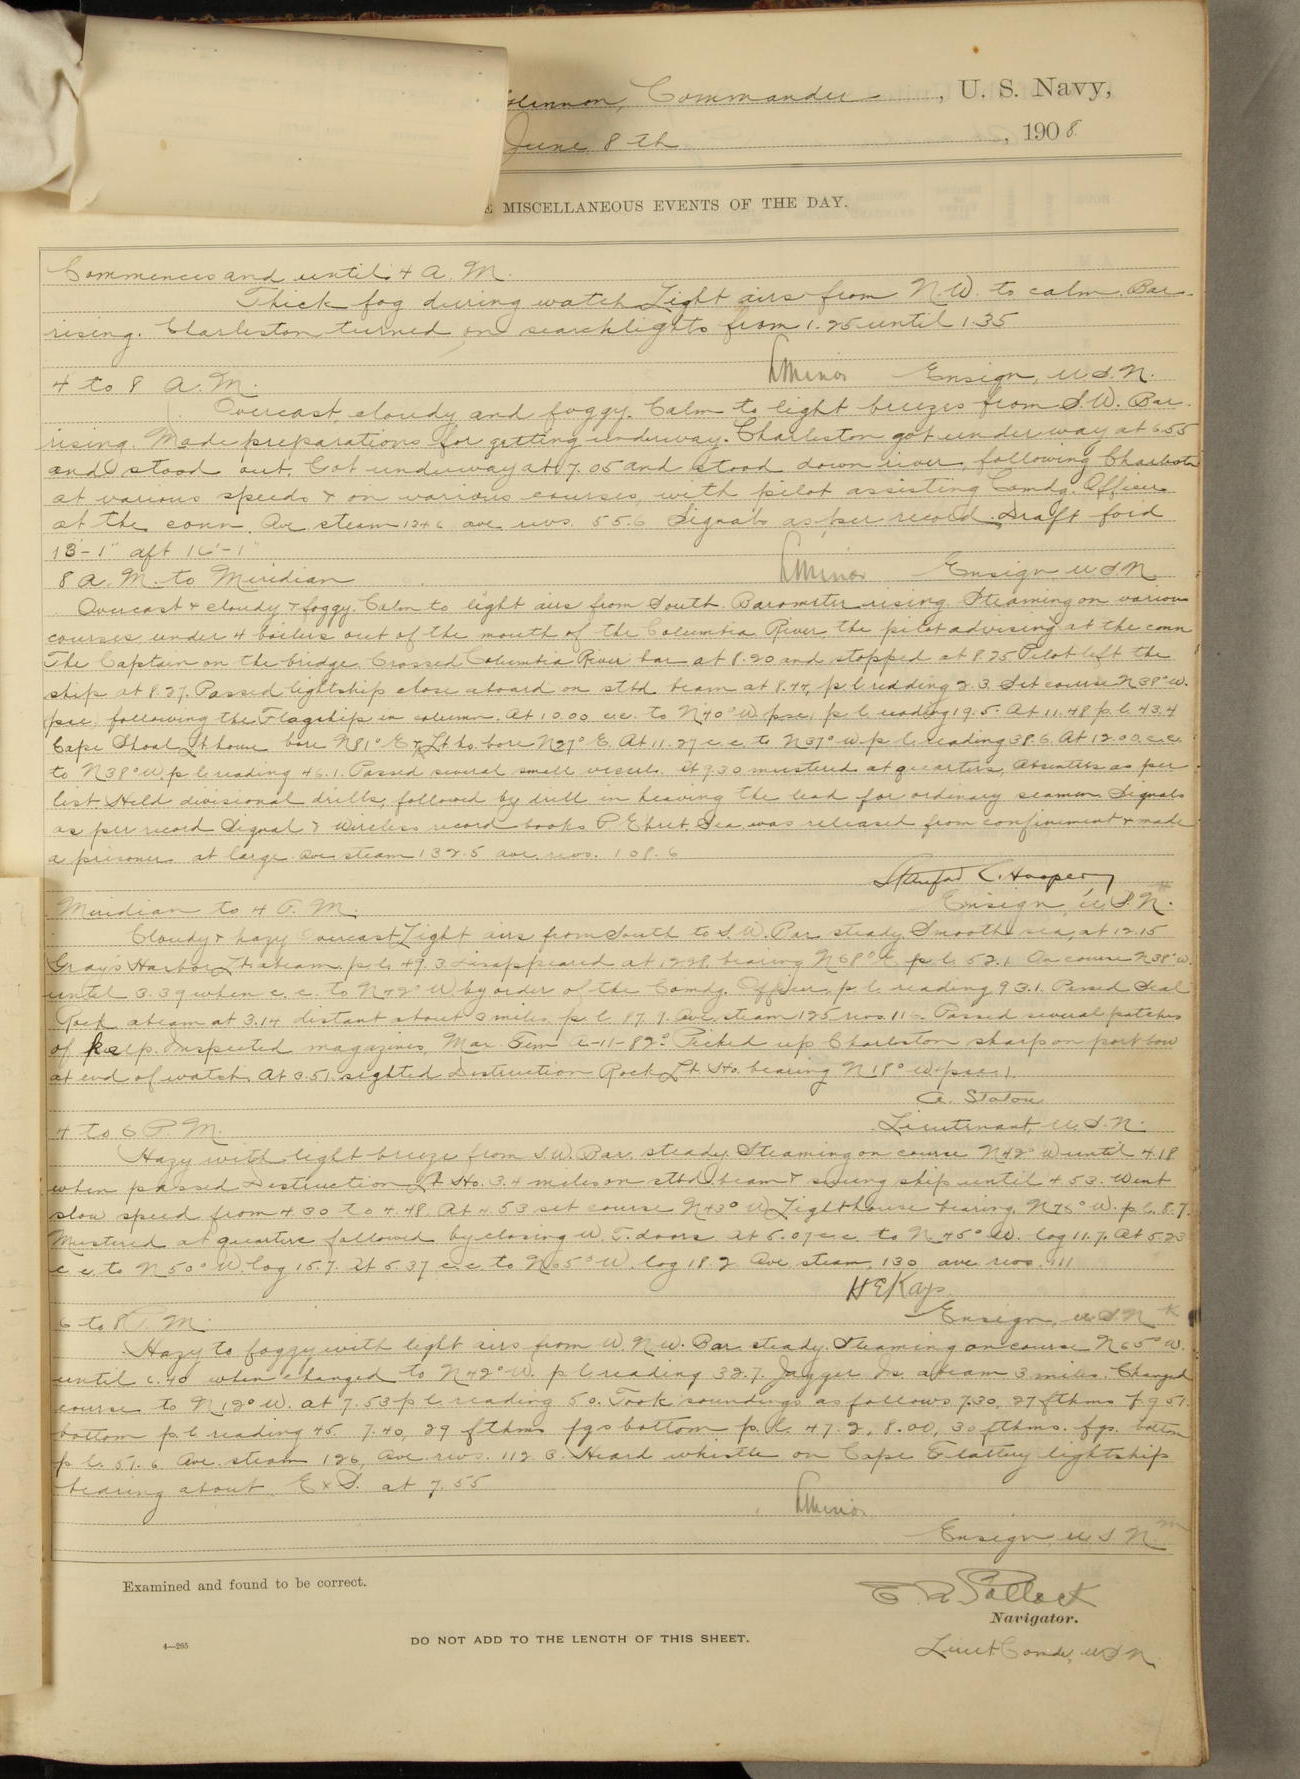 Commander, U. S. Navy,
June 8th, 1908
MISCELLANEOUS EVENTS OF THE DAY.
Commences and until 4 A. M.
Thick fog during watch Light airs from N.W. to calm. Bar.
rising. Charleston turned on searchlights from 1.25 until 1.35
LMinor Ensign, U.S.N.
4 to 8 A. M.
Overcast, cloudy and foggy. Calm to light breezes from S.W. Bar.
rising. Made preparations for getting underway. Charleston got under way at 6.55
and stood out. Got underway at 7.05 and stood down river, following Charleston
at various speeds & on various courses, with pilot assisting Comdg. Officer
at the conn. Ave steam 124.6 ave revs. 55.6 Signals as per record. Draft for'd
13'-1" aft 16'-1"
LMinor Ensign U.S.N.
8 A. M. to Meridian
Overcast & cloudy & foggy. Calm to light airs from South. Barometer rising. Steaming on various
courses under 4 boilers out of the mouth of the Columbia River, the pilot advising at the conn
The Captain on the bridge. Crossed Columbia River bar at 8.20 and stopped at 8.25 Pilot left the
ship at 8.27. Passed lightship close aboard on stbd beam at 8.44, p l redding 2.3. Set course N38°W.
psc, following the Flagship in column. At 10.00 c.c. to N40°W psc, p. l. reading 19.5. At 11.48 p.l. 43.4
Cape Shoal Lt house bore N81°E & Lt ho. bore N27°E. At 11.27 c.c. to N37°W p l. reading 38.6. At 12.00 c.c.
to N38°W, p l reading 46.1. Passed several small vessels. At 9.30 mustered at quarters, absentees as per
list. Held divisional drills, followed by drill in heaving the lead for ordinary seamen. Signals
as per record Signal & wireless record books. P Ebret, Sea. was released from confinement & made
a prisoner at large. Ave steam 132.5 ave. revs. 108.6
Stanford C. Hooper
Ensign, U.S.N.
Meridian to 4 P. M.
Cloudy & hazy overcast Light airs from South to S.W. Bar steady Smooth sea, at 12.15
Gray's Harbor Lt abeam, p.l. 49.3 disappeared at 12.28, bearing N68°E, p l. 52.1 On course N38°W.
until 3.39 when c. c. to N42°W by order of the Comdg. Officer, p l. reading 93.1. Passed Seal
Rock abeam at 3.14 distant about 3 miles p l. 87.9. Ave steam 125 revs. Passed several patches
of kelp. Inspected magazines, Max. Tem 82° Picked up Charleston sharp on port bow
at end of watch. At 3.51 sighted Destruction Rock Lt Ho. bearing N18°W (psc).
A. Staton
Lieutenant, U.S.N.
4 to 6 P. M.
Hazy with light breeze from S.W. Bar. steady. Steaming on course N42°W until 4.18
when passed Destruction Lt Ho. 3.4 miles on stbd. beam & swung ship until 4.53. Went
slow speed from 4.30 to 4.48. At 4.53 set course N43°W, Lighthouse bearing N75°W. p l. 8.7.
Mustered at quarters followed by closing W. T. doors. At 5.07 c.c. to N45°W. log 11.7. At 5.23
c c. to N50°W. log 15.7. At 5.37 c.c. to N65°W log 18.2 Ave steam, 130 ave revs. 111
H E Kays
Ensign, U.S.N
6 to 8 P. M.
Hazy to foggy with light airs from W.N.W. Bar steady. Steaming on course N65°W.
until 6.40 when changed to N42°W. p l reading 32.7. Jagger Is. abeam 3 miles. Changed
course to N12°W. at 7.53 p l. reading 50. Took soundings as follows 7.30, 27 fthms f g s.
bottom p. l reading 45. 7.40, 29 fthms fgs bottom. p. l. 47.2, 8.00, 30 fthms. fgs. bottom
p l. 51.6 Ave. steam 126, Ave revs. 112.3. Heard whistle on Cape Flattery lightship
bearing about E x S. at 7.55
LMinor
Ensign U.S.N.
Examined and found to be correct.
E. R. Pollock
Navigator.
4—265
DO NOT ADD TO THE LENGTH OF THIS SHEET.
Lieut Comdr, U S N.